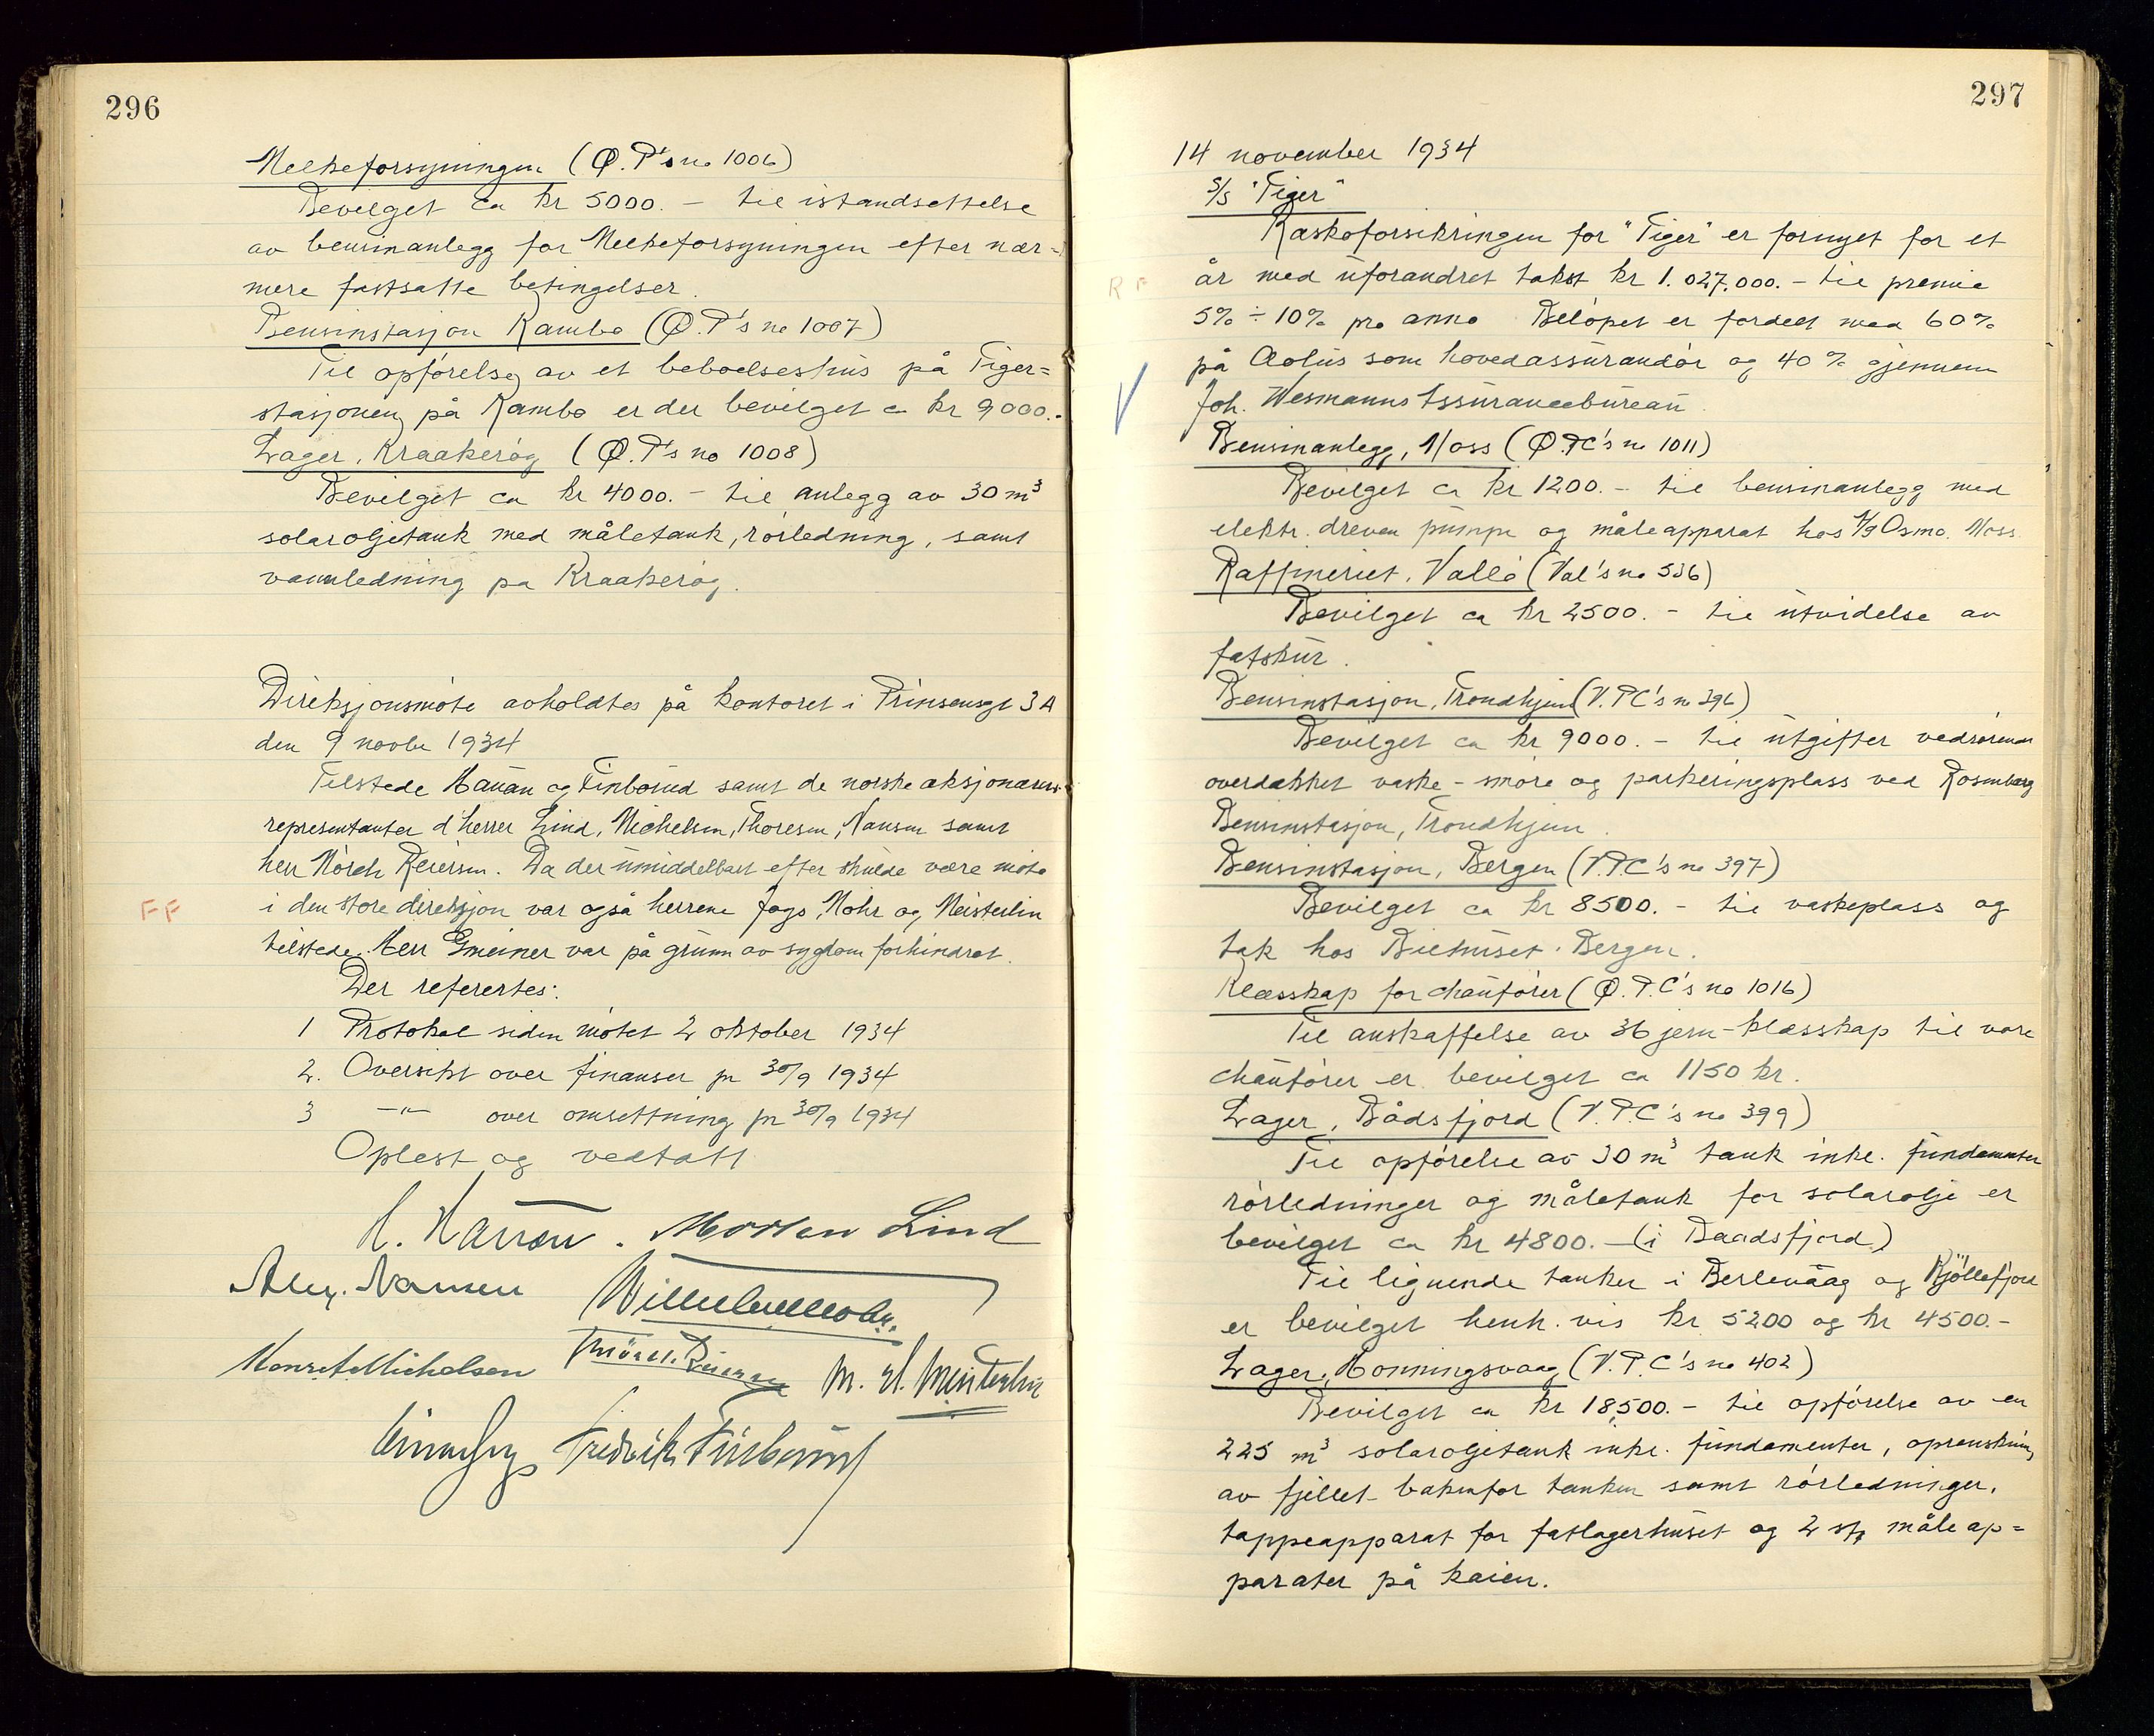 296
Melkeforsyningen (Ø.P's no 1006)
Bevilget ca kr 5000.- til istandsettelse
av bensinanlegg for Melkeforsyningen efter nær=
mere fastsatte betingelser.
Bensinstasjon Rambo (Ø.P's no 1007)
Til opførelse av et beboelseshus på Tiger=
stasjonen på Kambo er der bevilget ca kr 9000.-
Lager, Kraakerøg (Ø.P's no 1008)
Bevilget ca kr 4000.- til anlegg av 30 m³
solaroljetank med måletank, rørledning, samt
vannledning pa Kraakerøg.
Direksjonsmøte avholdtes på kontoret i Prinsensgt 3A
den 9 novbr 1934
Tilstede Hauan og Finborud samt de norske aksjonærers
representanter d'herrer Lind, Michelsen, Thoresen, Nansen samt
herr Mörch Reiersen. Da der umiddelbart efter skulde være møte
i den store direksjon var også herrene Fogs, Mohr og Meisterlin
FF
tilstede. Herr Gmeiner var på grunn av sygdom forhindret.
Der referertes:
1 Protokol siden møtet 2 oktober 1934
2. Oversikt over finanser pr 30/9 1934
3 -"- over omsettning pr 30/9 1934
Oplest og vedtatt
H. Hauan. Morten Lind
Alex. Nansen Wilhelm Mohr.
Hans A Michelsen T Mörch. Reiersen M. H. Meisterlin
Fredrik Finborud
297
14 november 1934
S/S "Tiger"
Kaskoforsikringen for "Tiger" er fornyet for et
år med uforandret takst kr 1.027.000.- til premie
RF
5% ÷ 10% pro anno Beløpet er fordelt med 60%
på Aolus som hovedassurandør og 40% gjennem
Joh. Wesmanns Assurancebureau.
Bensinanlegg, Moss (Ø.PC's no 1011)
Bevilget ca kr 1200.- til bensinanlegg med
elektr. dreven pumpe og måleapparat hos A/S Osmo. Moss.
Raffineriet, Vallö (Val's no 536)
Bevilget ca kr 2500.- til utvidelse av
fatskur.
Bensinstasjon, Trondhjem (V.PC's no 396)
Bevilget ca kr 9000.- til utgifter vedrørende
overdekket vaske- smøre og parkeringsplass ved Rosenborg
Bensinstasjon, Trondhjem.
Bensinstasjon, Bergen (V.PC's no 397)
Bevilget ca kr 8500.- til vaskeplass og
tak hos Bilhuset. Bergen.
Klæsskap for chauförer (Ø.P.C's no 1016)
Til anskaffelse av 36 jern-klæsskap til våre
chauförer er bevilget ca 1150 kr.
Lager, Bådsfjord (V.P.C's no 399)
Til opførelse av 30 m³ tank inkl. fundamenter
rørledninger og måletank for solarolje er
bevilget ca kr 4800.- (i Baadsfjord)
Til lignende tanker i Berlevaag og Kjöllefjord
er bevilget henh. vis kr 5200 og kr 4500.-
Lager, Honningsvaag (V.P.C's no 402)
Bevilget ca kr 18,500.- til opførelse av en
225 m³ solaroljetank inkl. fundamenter, oprenskning
av fjellet bakenfor tanken samt rørledninger,
tappeapparat for fatlagerhuset og 2 stk måleap=
parater på kaien.